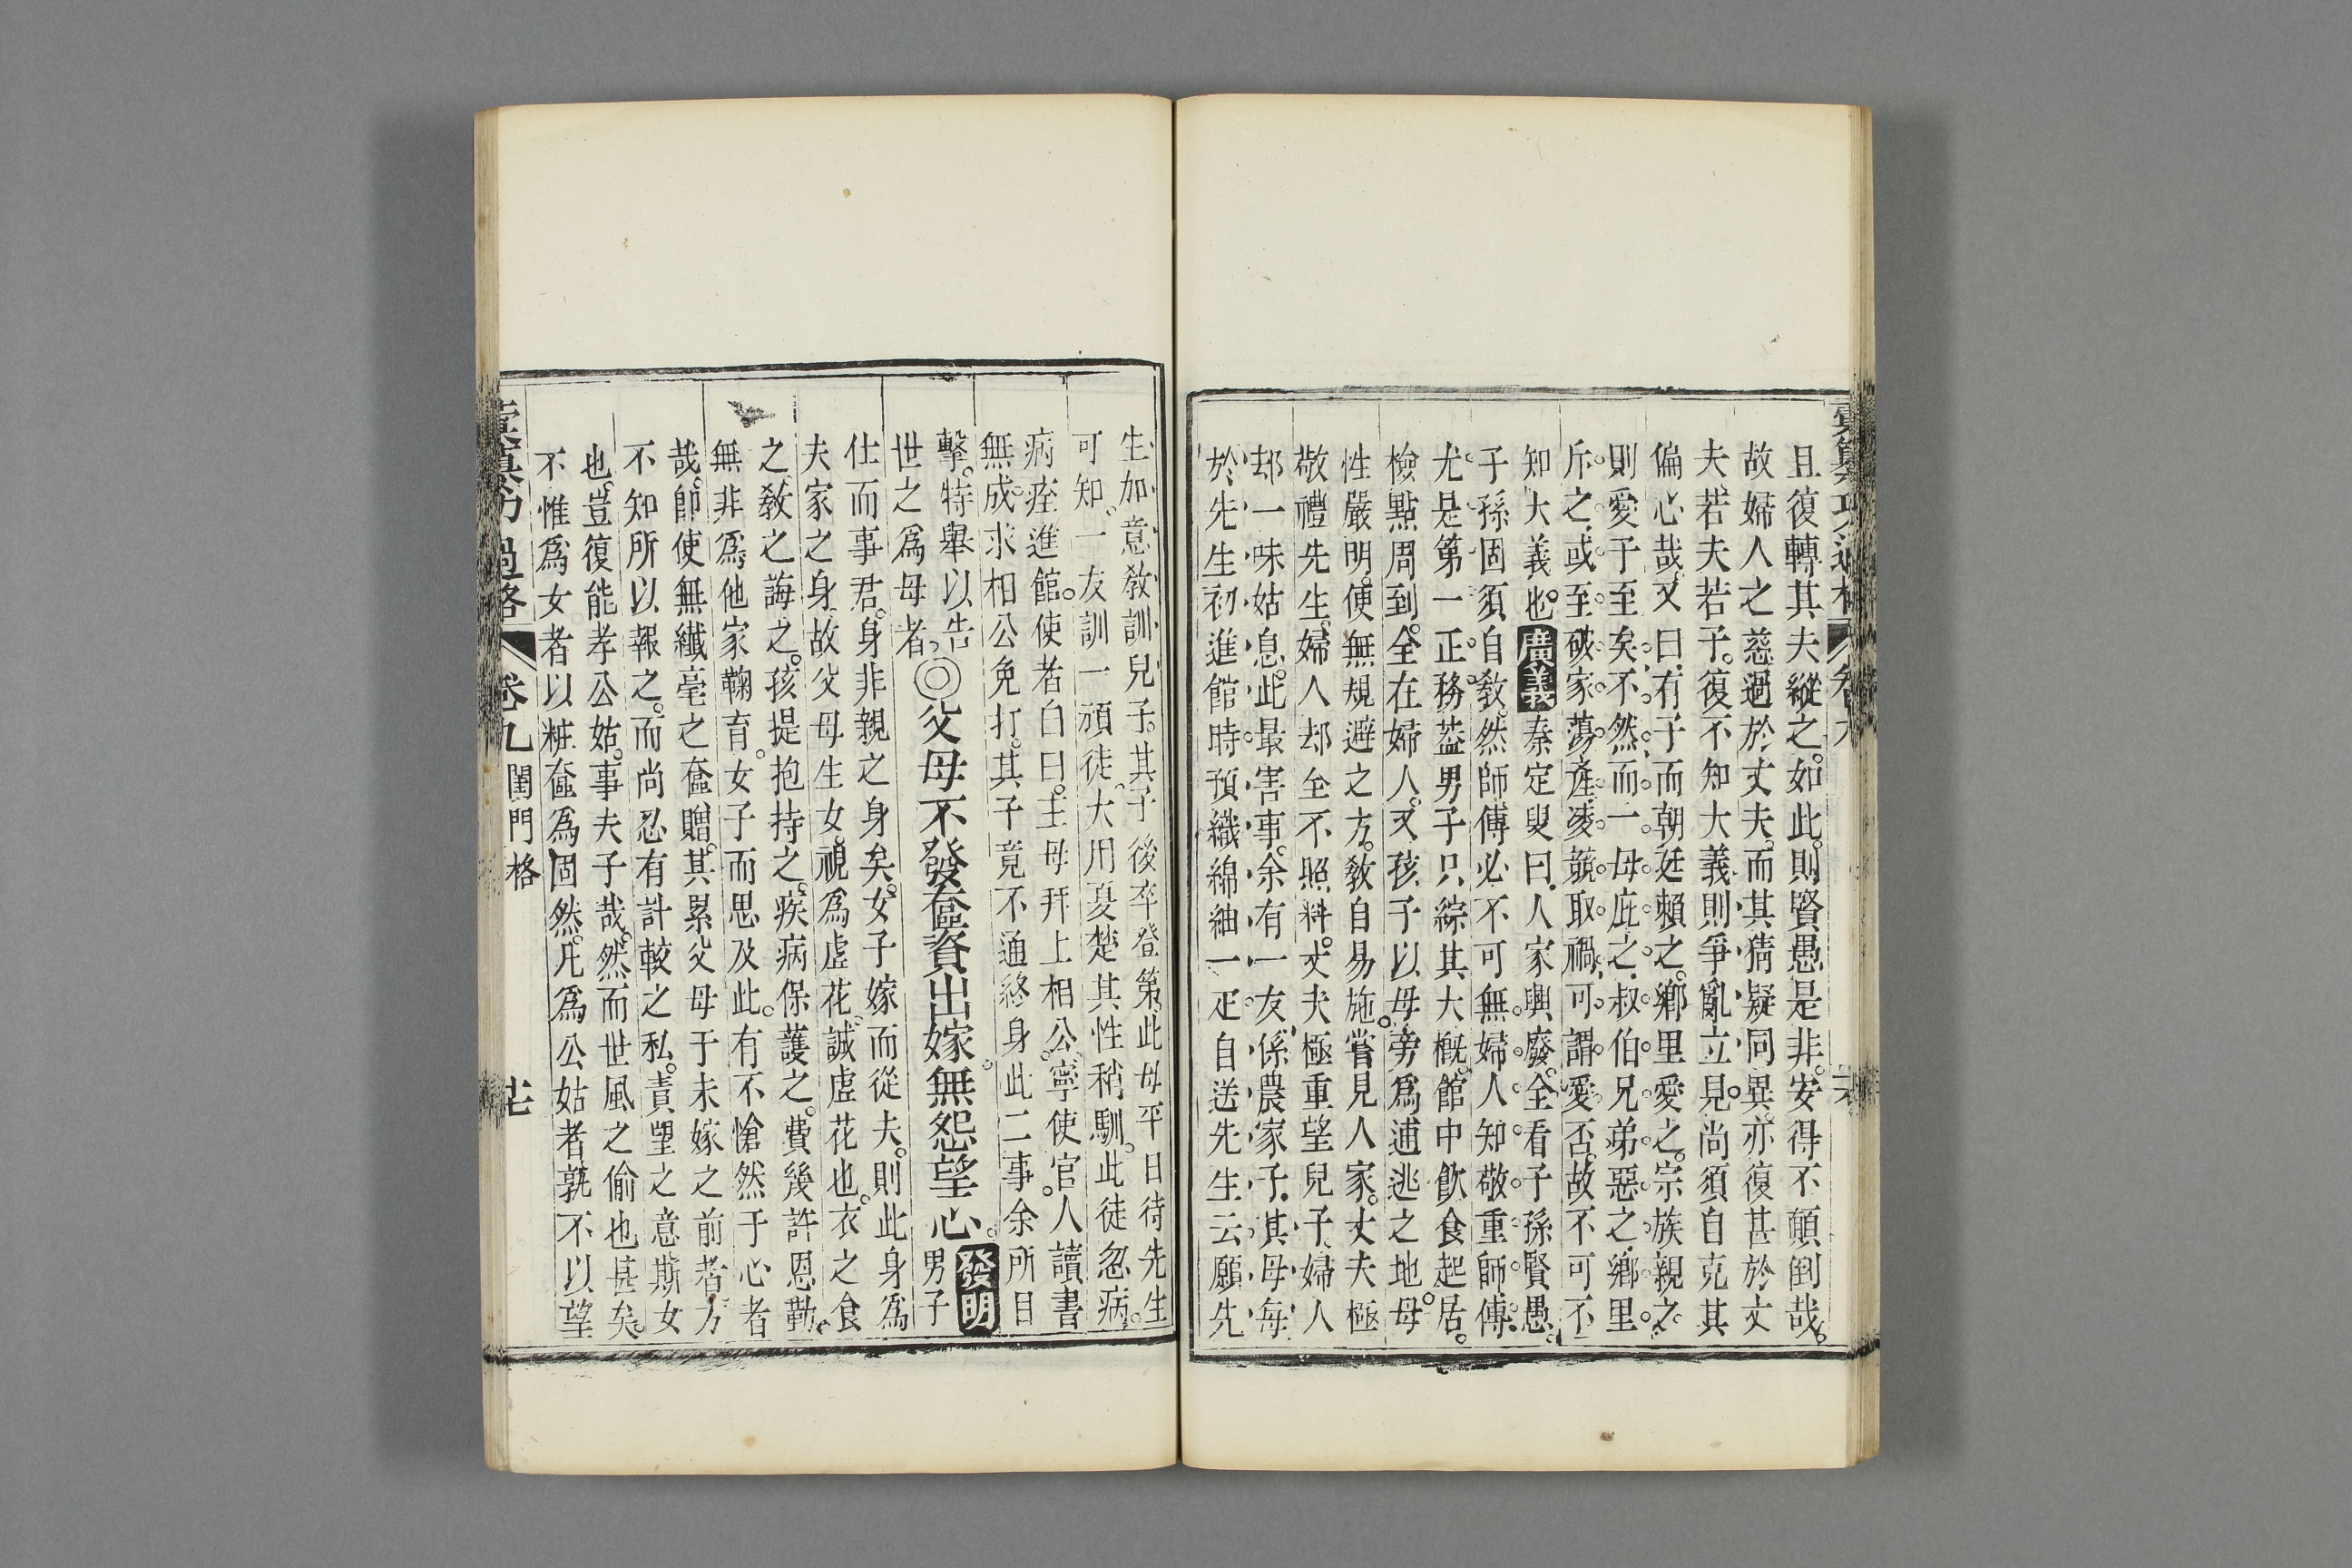 且復轉其夫縱之。如此。則賢愚是非。安得不顛倒哉。
故婦人之慈。過於丈夫。而其猜疑同異。亦復甚於丈
夫。若夫若子。復不知大義。則爭亂立見。尚須自克其
偏心哉。又曰。有子而朝廷賴之。鄉里愛之。宗族親之。
則愛子至矣。不然。而一母庇之。叔伯兄弟惡之。鄉里
斥之。或至破家蕩產。凌競取禍。可謂愛否。故不可不
知大義也。廣義秦定叟曰。人家興廢。全看子孫賢愚。
子孫固須自教。然師傅必不可無。婦人知敬重師傅。
尤是第一正務。葢男子只綜其大概。館中飲食起居。
檢點周到。全在婦人。又孩子以母旁為逋逃之地。母
性嚴明。使無規避之方。教自易施。嘗見人家。丈夫極
敬禮先生。婦人却全不照料。丈夫極重望兒子。婦人
却一味姑息。此最害事。余有一友。係農家子。其母每
於先生初進館時。預織綿紬一疋。自送先生云。願先
生加意教訓兒子。其子後卒登第。此母平日待先生
可知。一友訓一頑徒。大用夏楚。其性稍馴。此徒忽病。
病痊進館。使者白曰。主母拜上相公。寧使官人讀書
無成。求相公免打。其子竟不通終身。此二事余所目
擊。特舉以告
世之為母者。◎父母不發奩資出嫁。無怨望心。發明男子
仕而事君。身非親之身矣。女子嫁而從夫。則此身為
夫家之身。故父母生女。視為虛花。誠虛花也。衣之食
之。教之誨之。孩提抱持之。疾病保護之。費幾許恩勤。
無非爲他家鞠育。女子而思及此。有不愴然于心者
哉。卽使無纖毫之奩贈。其累父母于未嫁之前者。方
不知所以報之。而尚忍有計較之私。責望之意。斯女
也。豈復能孝公姑。事夫子哉。然而世風之偷也甚矣。
不惟爲女者以粧奩爲固然。凡爲公姑者。孰不以望
卷九 閨門格